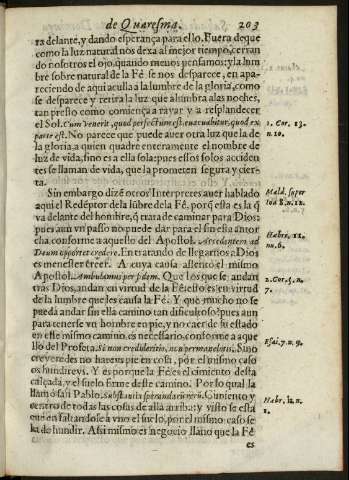 de Quaresma. 203
ra delante, y dando esperança para ello. Fuera de que
como la luz natural nos dexa al mejor tiempo, cerran
do nosotros el ojo, quando menos pensamos: y la lum
bre sobre natural de la Fè se nos desparece, en apa-
reciendo de aqui aculla a la lumbre de la gloria, como
se desparece y retira la luz que alumbra a las noches,
tan presto como comiença a rayar y a resplandecer
el Sol. Cum venerit, quod perfectum est, euacuabitur, quod ex
parte est. No parece que puede auer otra luz que la de
la gloria, a quien quadre enteramente el nombre de
luz de vida, sino es a ella sola: pues essos solos acciden
tes se llaman de vida, que la prometen segura y cier-
ta.
Sin embargo dizẽ otros Interpretes auer hablado
aqui el Redẽptor de la lũbre de la Fè. porq̃ essa es la q̃
va delante del hombre, q̃ trata de caminar para Dios:
pues aun vn passo no puede dar para el sin essa antor
cha conforme a aquello del Apostol. Accedentem ad
Deum oportet credere. En tratando de llegarnos a Dios
es menester creer. A cuya causa asseriò el mismo
Apostol. Ambulamus per fidem. Que los que se andan
tràs Dios, andan en virtud de la Fè: esto es en virtud
de la lumbre que les causa la Fè. Y que mucho no se
pueda andar sin ella camino tan dificultoso? pues aun
para tenerse vn hombre en pie, y no caer de su estado
en este mismo camino, es necessario, conforme a aque
llo del Profeta. Si non credideritis, non permanebitis. Sino
creyeredes no haureis pie en cosa, por el mismo caso
os hundireys. Y es porque la Fè es el cimiento desta
calçada, y el suelo firme deste camino. Por lo qual la
llamò san Pablo. Substantia sperandarũ rerũ. Cimiento y
centro de todas las cosas de alla arriba: y visto se està
que en faltandose a vno el suelo, por el mismo caso se
ha de hundir. Assi mismo es negocio llano que la Fè
es
1. Cor. 13.
n. 10.
Mald. super
Ioã 8. n. 12.
Hæbre. 11.
nu. 6.
2. Cor. 5. n.
7.
Esai. 7. n. 9.
Hæbr. 11. n.
1.